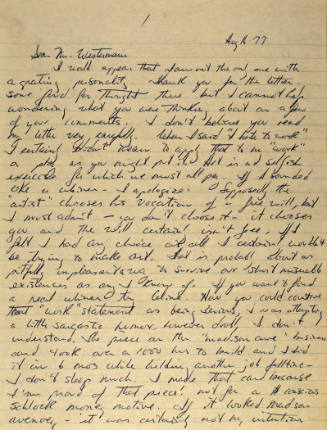 1
Aug 16 77
Dear Mr. Westermann
I would appear that I am not the only one with
a grating personality. Thank you for the letter
some food for thought there but I cannot help
wondering what you were thinking about on a few
of your comments. I don't believe you read
my letter very carefully. When I said "I hate to work"
I certainly didn't mean to apply that to me "work"
or art as you might put it. Art is not selfish
exercise for which we must all pay. If I sounded
like a whiner - I apologize. Supposedly the
"artist" chooses his vocation of free will, but
I must admit - you don't choose it - it chooses
you and the will certainly isn't free. If I
felt I had any choice at all I certainly wouldn't
be trying to make art. Art is probably about as
pitifully unpleasant a way to survive our short miserable
existences as any I know of. If you want to find
a real whiner try
that "work" statement as being serious, I was attempting
a little sarcastic humor however droll. I don't
understand the piece on the "madison ave" business
and took over a 1000 hrs to build and I did
it in 6 mos while holding another job fulltime -
I don't sleep much. I made that card because
I'm proud of that piece, not for a
schlock money motive. If it looked madison
avenuey - it was certainly not my intention